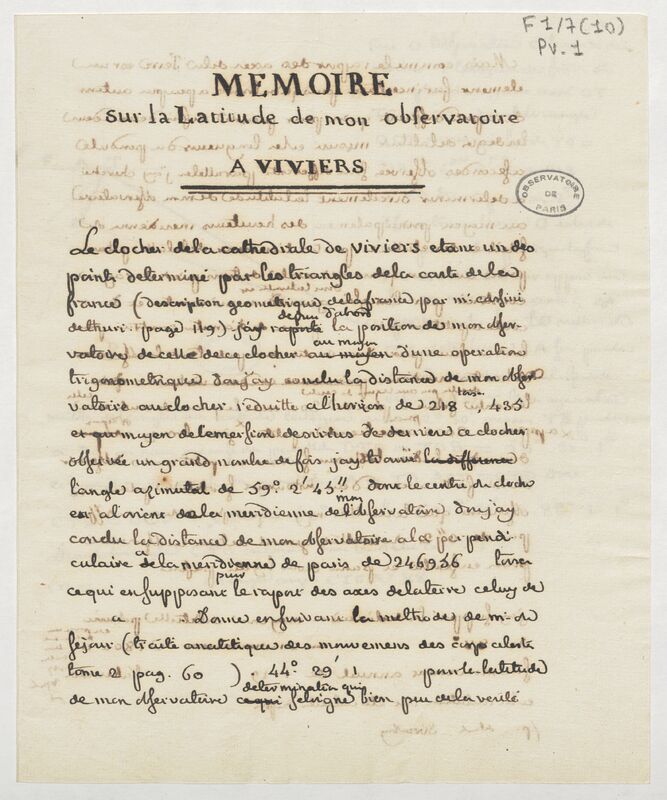 F 1/7 (10)
Pv. 1
MEMOIRE
sur la Latitude de mon observatoire
A VIVIERS
OBSERVATOIRE
DE
PARIS
Le clocher de la cathedrale de viviers etant un des
points determiné par les triangles de la carte de la
france (description geometrique de la france par mr. cassini
de thuri. page 119) jay raporté la position de mon obser-
depuis d'abord
vatoire de celle de ce clocher au moyen d'une operation
au moyen
trigonometrique dou jay conclu la distance de mon obser
vatoire au clocher reduitte a l'horison de 218 tois. , 435
et au moyen de l'emersion de sirius de derriere ce clocher
observée un grand nombre de fois jay trouvé la difference
l'angle azimutal de 59.° 2' 45'' dont le centre du cloche
est a l'orient de la meridienne de l'observatoire dou jay
mon
conclu la distance de mon observatoire a la perpendi
culaire a la meridienne de paris de 246956 toises
ce qui en supposant le raport des axes de la terre celuy de
pour
a Donne en suivant la methode de mr. du
sejour (traité analitique des mouvemens des corps celestes
tome 2 pag. 60 ) . 44.° 29' pour la latitude
de mon observatoire ce qui seloigne bien peu de la verité
determination qui